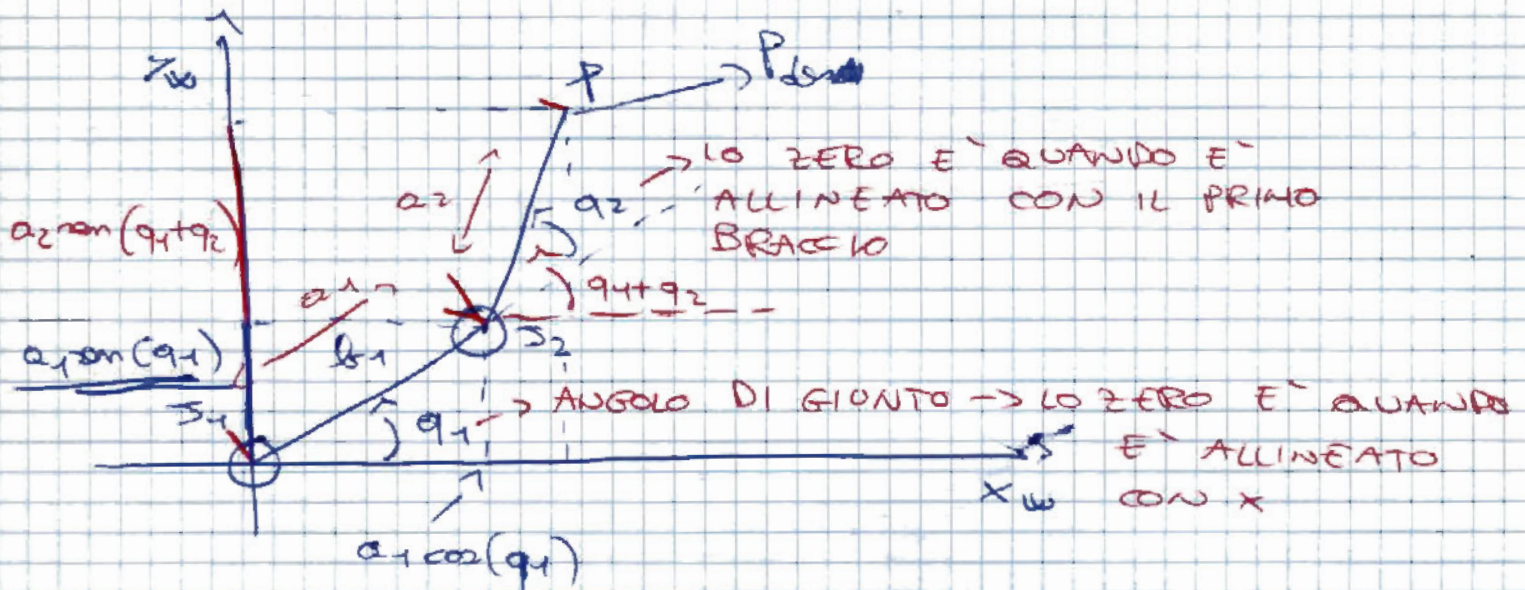 P
P des
LO ZERO E` QUANDO E`
ALLINEATO CON IL PRIMO
BRACCIO
a2
q2
a2 sen(q1+q2)
q1+q2
a1
J2
a1 sen(q1)
b1
J1
q1
ANGOLO DI GIUNTO -> LO ZERO E` QUANDO
E` ALLINEATO
CON X
XW
a1 cos(q1)